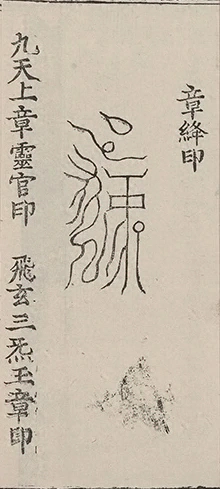 章絳印
九天上章靈官印　飛玄三炁玉章印